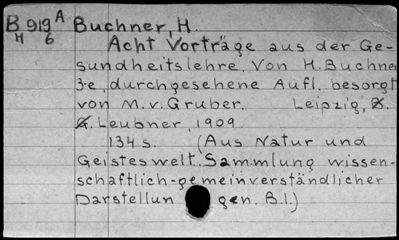 B 919 A Buchner, H.
H 6 Acht Vorträge aus der Ge-
sundheitslehre. Von H. Buchner
3-e, durchgesehene Aufl. besorgt
von M.v. Gruber. Leipzig, B.
G. Leubner, 1909
134 s. (Aus Natur und
Geisteswelt. Sammlung wissen-
schaftlich-gemeinverständlicher
Darstellun gen. B.1.)